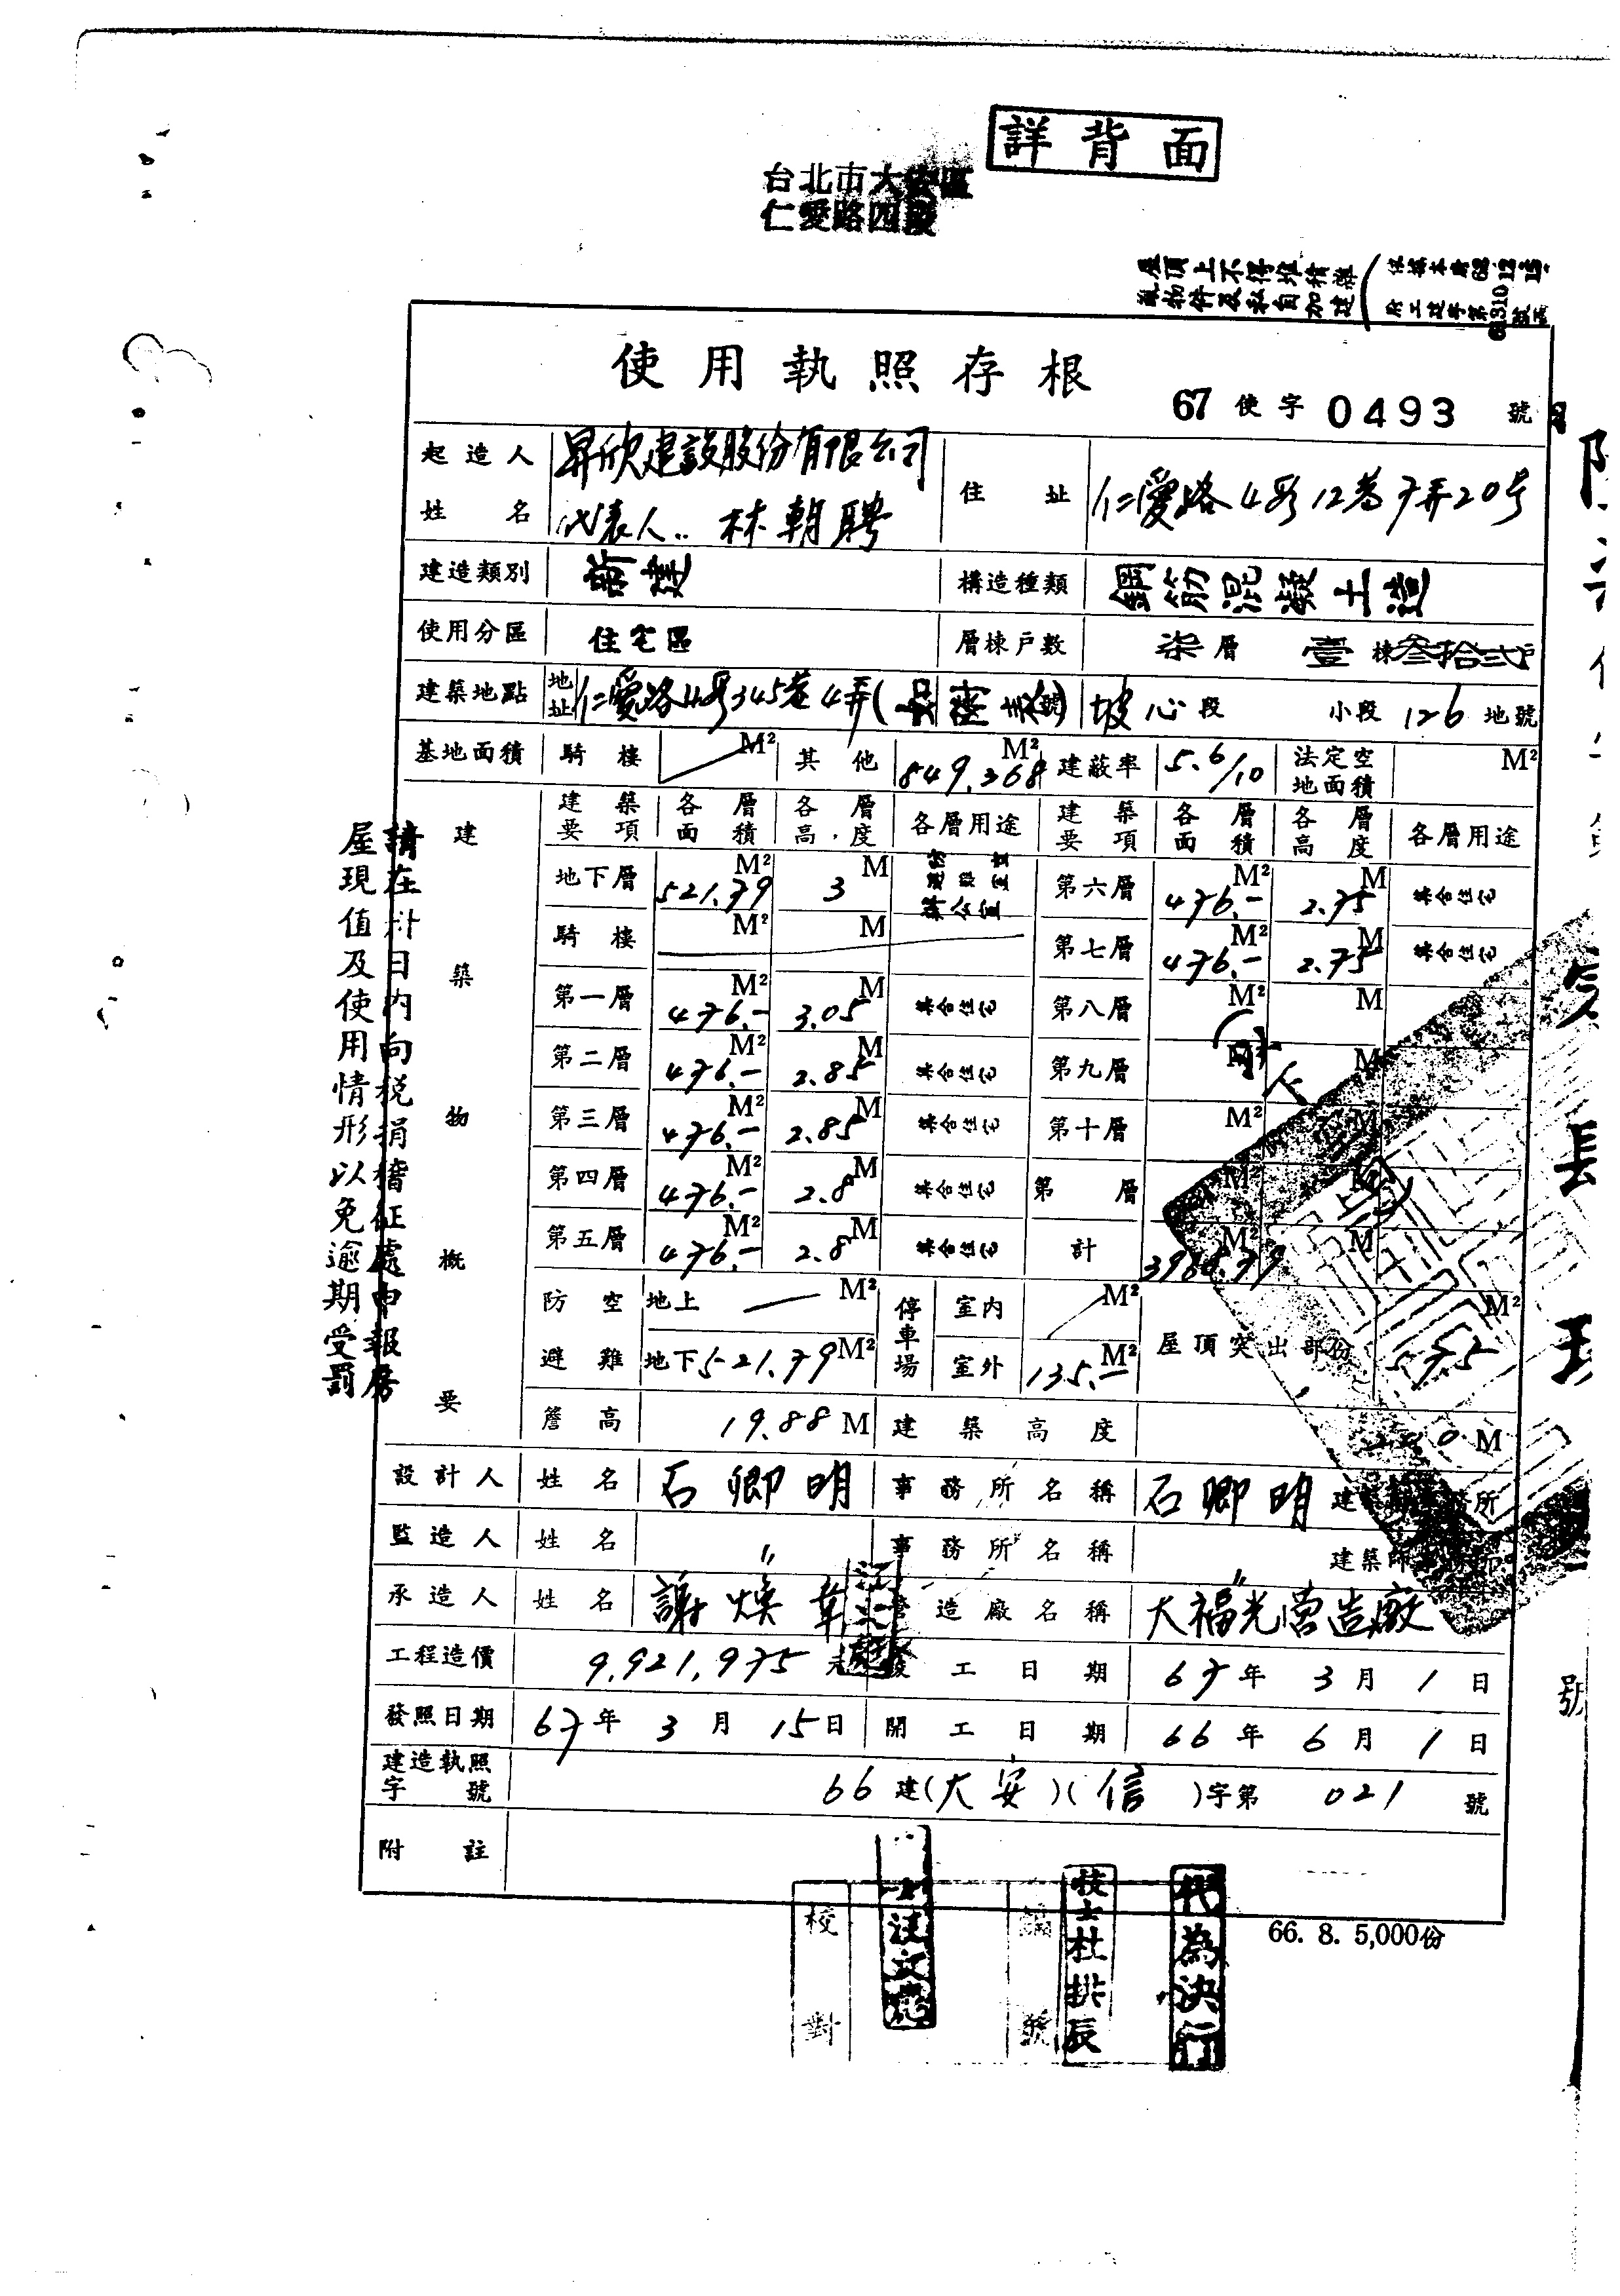 詳背面
台北市大安區
仁愛路四段
屋頂上不得堆積雜
物件及私自加建
使用執照存根
67 使字 0493 號
起造人姓名 昇欣建設股份有限公司
代表人：林朝聘
住址 仁愛路4段12巷7弄20号
建造類別 新建 構造種類 鋼筋混凝土造
使用分區 住宅區 層棟戶數 柒層 壹棟叁拾弍戶
建築地點 地址 仁愛路4段345巷4弄( ) 坡心段 小段 126 地號
基地面積 騎樓 M² 其他 849.368 M² 建蔽率 5.6/10 法定空地面積 M²
建築物概要
建築要項 各層面積 各層高度 各層用途 建築要項 各層面積 各層高度 各層用途
地下層 521.79 M² 3 M 第六層 476.- M² 2.75 M 集合住宅
騎樓 M² M 第七層 476.- M² 2.75 M 集合住宅
第一層 476.- M² 3.05 M 集合住宅 第八層 M² M
第二層 476.- M² 2.85 M 集合住宅 第九層 M² M
第三層 476.- M² 2.85 M 集合住宅 第十層 M² M
第四層 476.- M² 2.8 M 集合住宅 第 層 M² M
第五層 476.- M² 2.8 M 集合住宅 計 M² M
防空避難 地上 M² 停車場 室內 M² 屋頂突出部份 M²
地下 521.79 M² 室外 135.- M²
簷高 19.88 M 建築高度 M
設計人 姓名 石卿明 事務所名稱 石卿明 建 所
監造人 姓名 〃 事務所名稱 〃 建築師
承造人 姓名 謝煥章 營造廠名稱 大福光營造廠
工程造價 9,921,975 元 竣工日期 67年3月1日
發照日期 67年3月15日 開工日期 66年6月1日
建造執照字號 66建(大安)(信)字第021號
附註
請在卅日內向稅捐稽征處申報房
屋現值及使用情形以免逾期受罰
校對
號
技士杜拱辰
代為決行
66. 8. 5,000份
長
號